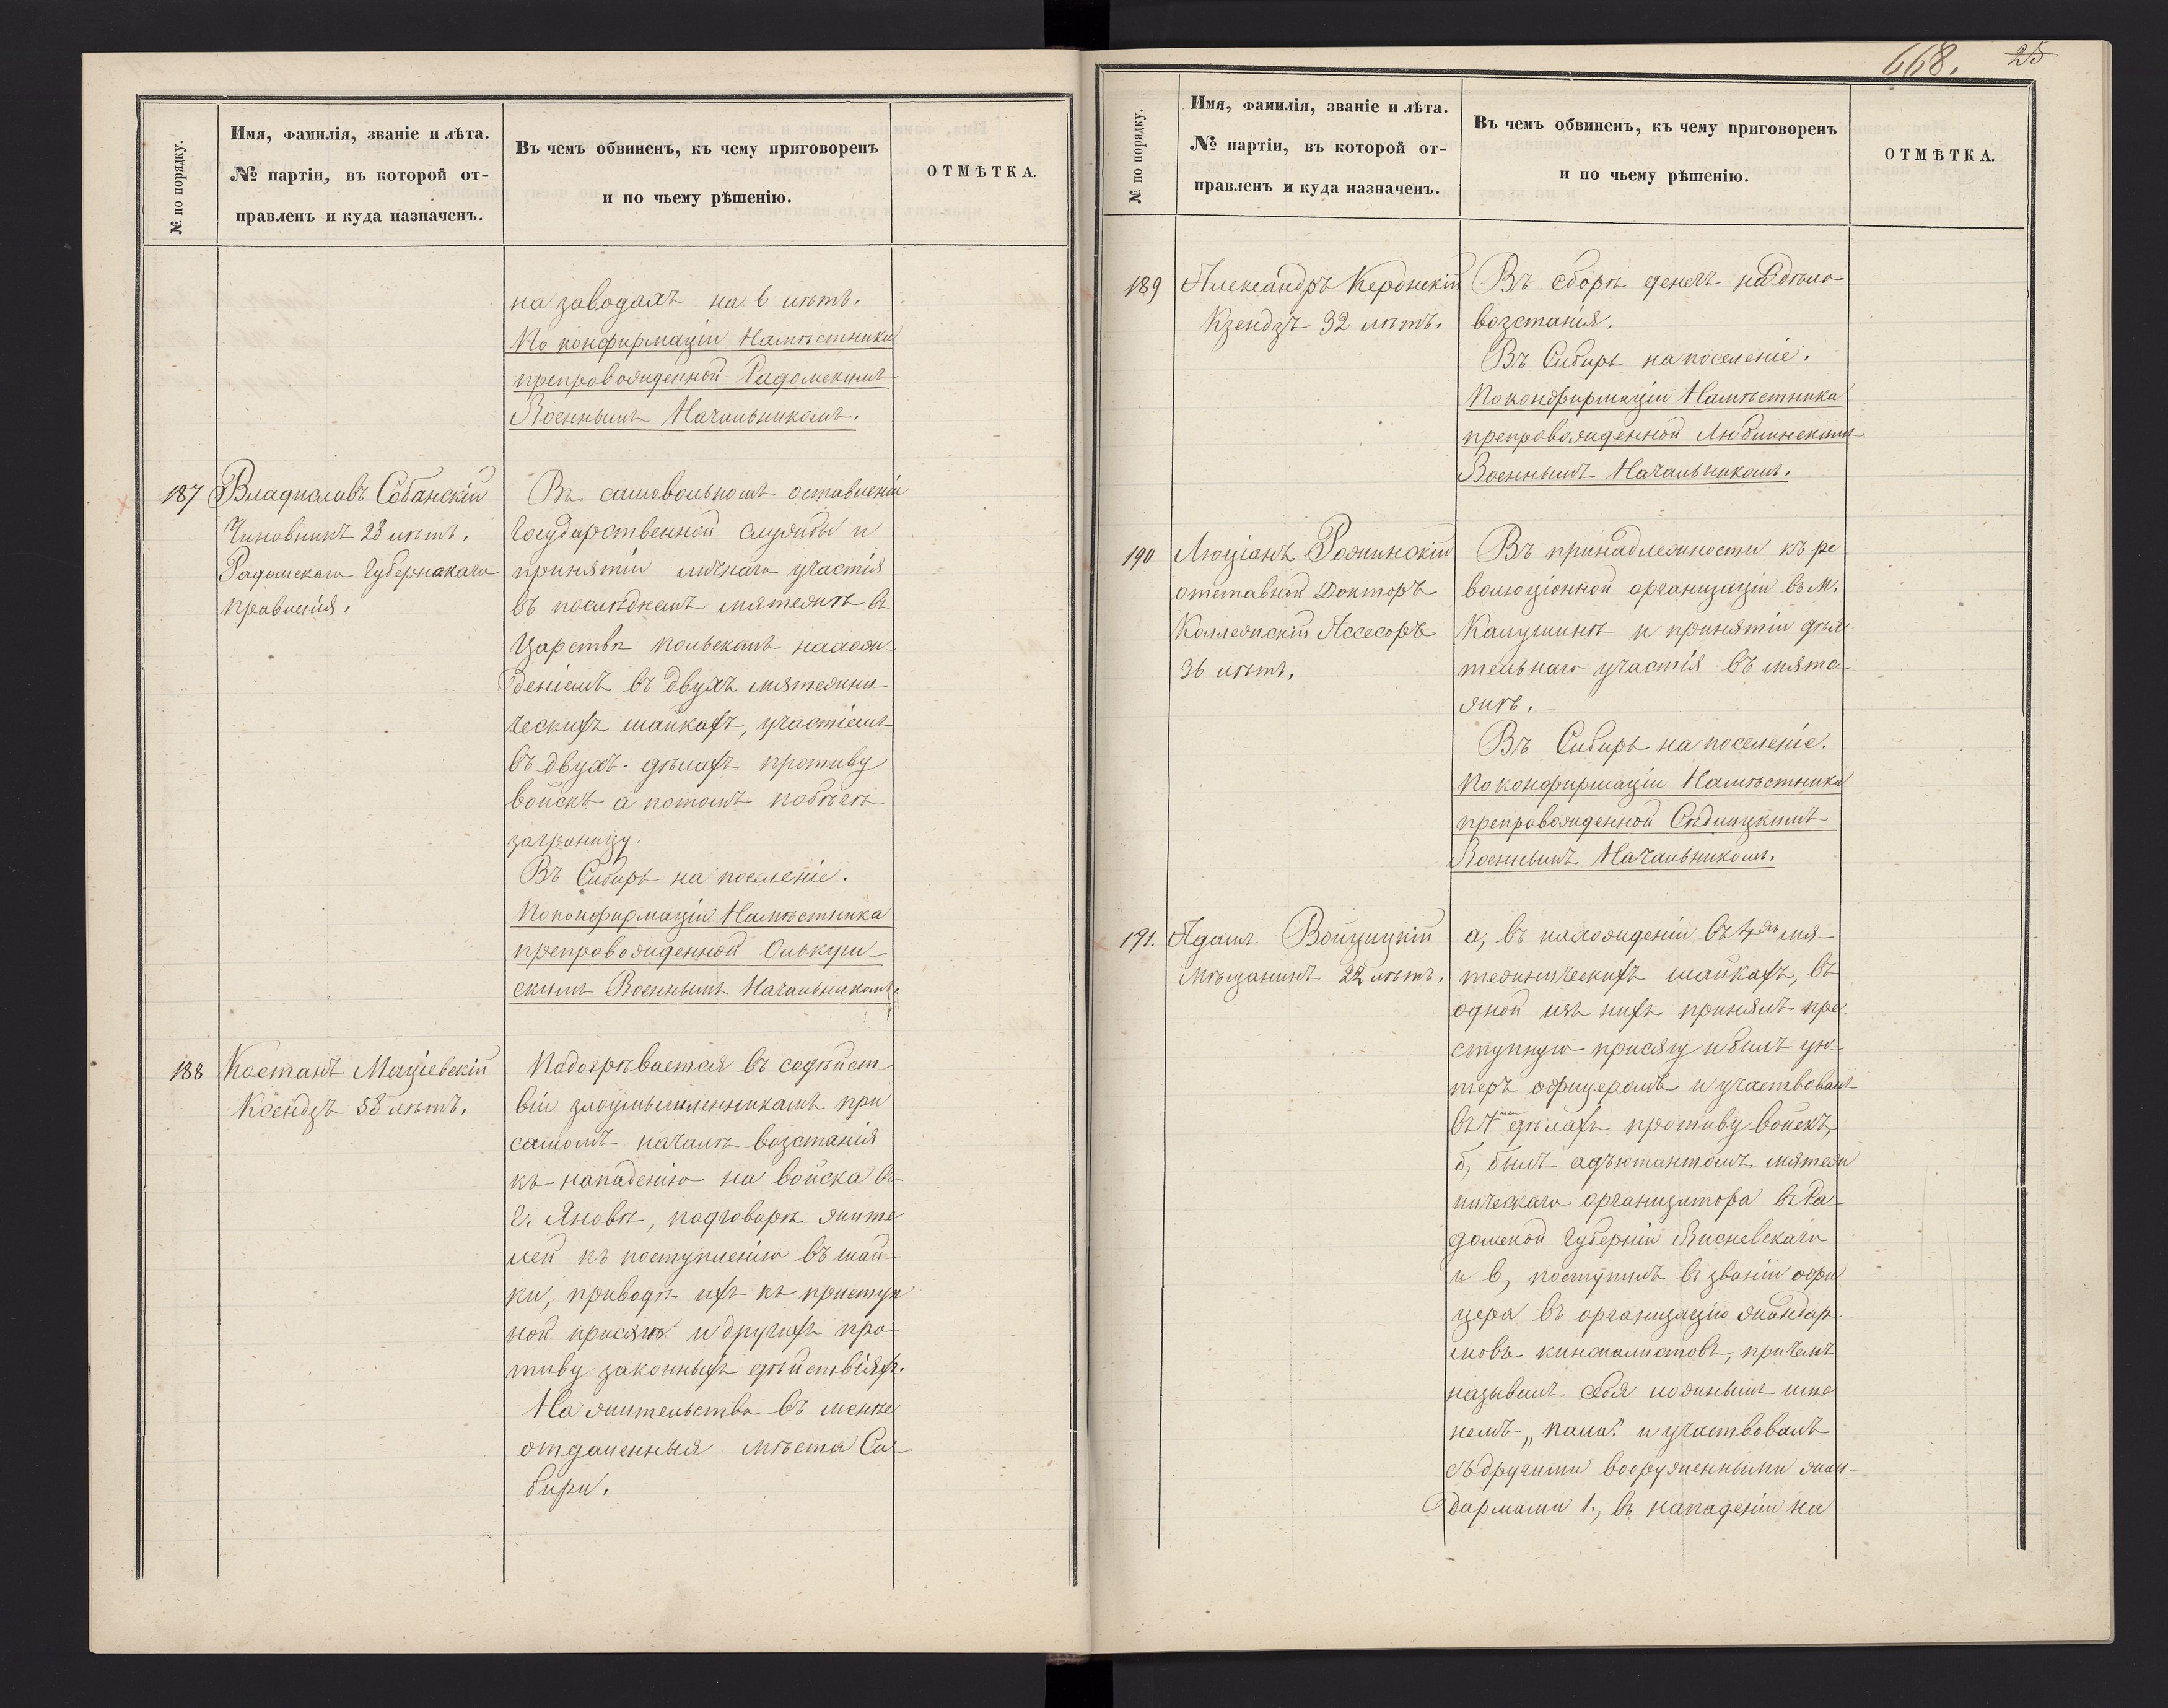 № по порядку.
Имя, фамилія, званіе и лѣта.
№ партіи, въ которой от-
правленъ и куда назначенъ.
Въ чемъ обвиненъ, къ чему приговоренъ
и по чьему рѣшенію.
ОТМѢТКА.
на заводахъ на 6 лѣтъ.
По конфирмаціи Намѣстника
препровожденной Радомскимъ
Военнымъ Начальникомъ.
187 Владиславъ Собанскій
Чиновникъ 28 лѣтъ.
Радомскаго Губернскаго
Правленія.
Въ самовольномъ оставленіи
Государственной службы и
принятіи личнаго участія
въ послѣднемъ мятежѣ въ
Царствѣ Польскомъ нахож-
деніемъ въ двухъ мятежни-
ческихъ шайкахъ, участіемъ
въ двухъ дѣлахъ противу
войскъ а потомъ побѣгѣ
заграницу.
Въ Сибирь на поселеніе.
По конфирмаціи Намѣстника
препровожденной Олькуш-
скимъ Военнымъ Начальникомъ.
188 Костанъ Маціевскій
Ксендзъ 58 лѣтъ.
Подозрѣвается въ содѣйст-
віи злоумышленникамъ при
самомъ началѣ возстанія
къ нападенію на войска въ
г. Яновѣ, подговорѣ жите
лей къ поступленію въ шай-
ки, приводѣ ихъ къ преступ
ной присягѣ и другихъ про-
тиву законныхъ дѣйствіяхъ.
На жительство въ менѣе
отдаленныя мѣста Си-
бири.
668. 25
№ по порядку.
Имя, фамилія, званіе и лѣта.
№ партіи, въ которой от-
правленъ и куда назначенъ.
Въ чемъ обвиненъ, къ чему приговоренъ
и по чьему рѣшенію.
ОТМѢТКА.
189 Александръ Кердонскій
Кзендзъ 32 лѣтъ.
Въ сборѣ денегъ на дѣло
возстанія.
Въ Сибирь на поселеніе.
По конфирмаціи Намѣстника
препровожденной Люблинскимъ
Военнымъ Начальникомъ.
190 Люціанъ Рожинскій
отставной Докторъ
Коллежскій Ассесоръ
36 лѣтъ.
Въ принадлежности къ ре
волюціонной организаціи въ м.
Калушинѣ и принятіи дѣя
тельнаго участія въ мяте-
жѣ.
Въ Сибирь на поселеніе.
По конфирмаціи Намѣстника
препровожденной Сѣдлицкимъ
Военнымъ Начальникомъ.
191. Адамъ Войцицкій
Мѣщанинъ 22 лѣтъ.
а, въ нахожденіи въ 4хъ мя-
тежническихъ шайкахъ, въ
одной изъ нихъ принялъ пре
ступную присягу и былъ ун-
теръ офицеромъ и участвовалъ
въ 7ми дѣлахъ противу войскъ,
б, былъ адъютантомъ мятеж
ническаго организатора въ Ра-
домской Губерніи Яисневскаго
и в, поступилъ въ званіи офи
цера въ организацію жандар
мовъ кинжалистовъ, причемъ
называлъ себя ложнымъ име
немъ „Пана" и участвовалъ
съ другими вооруженными жан-
дармами 1., въ нападеніи на